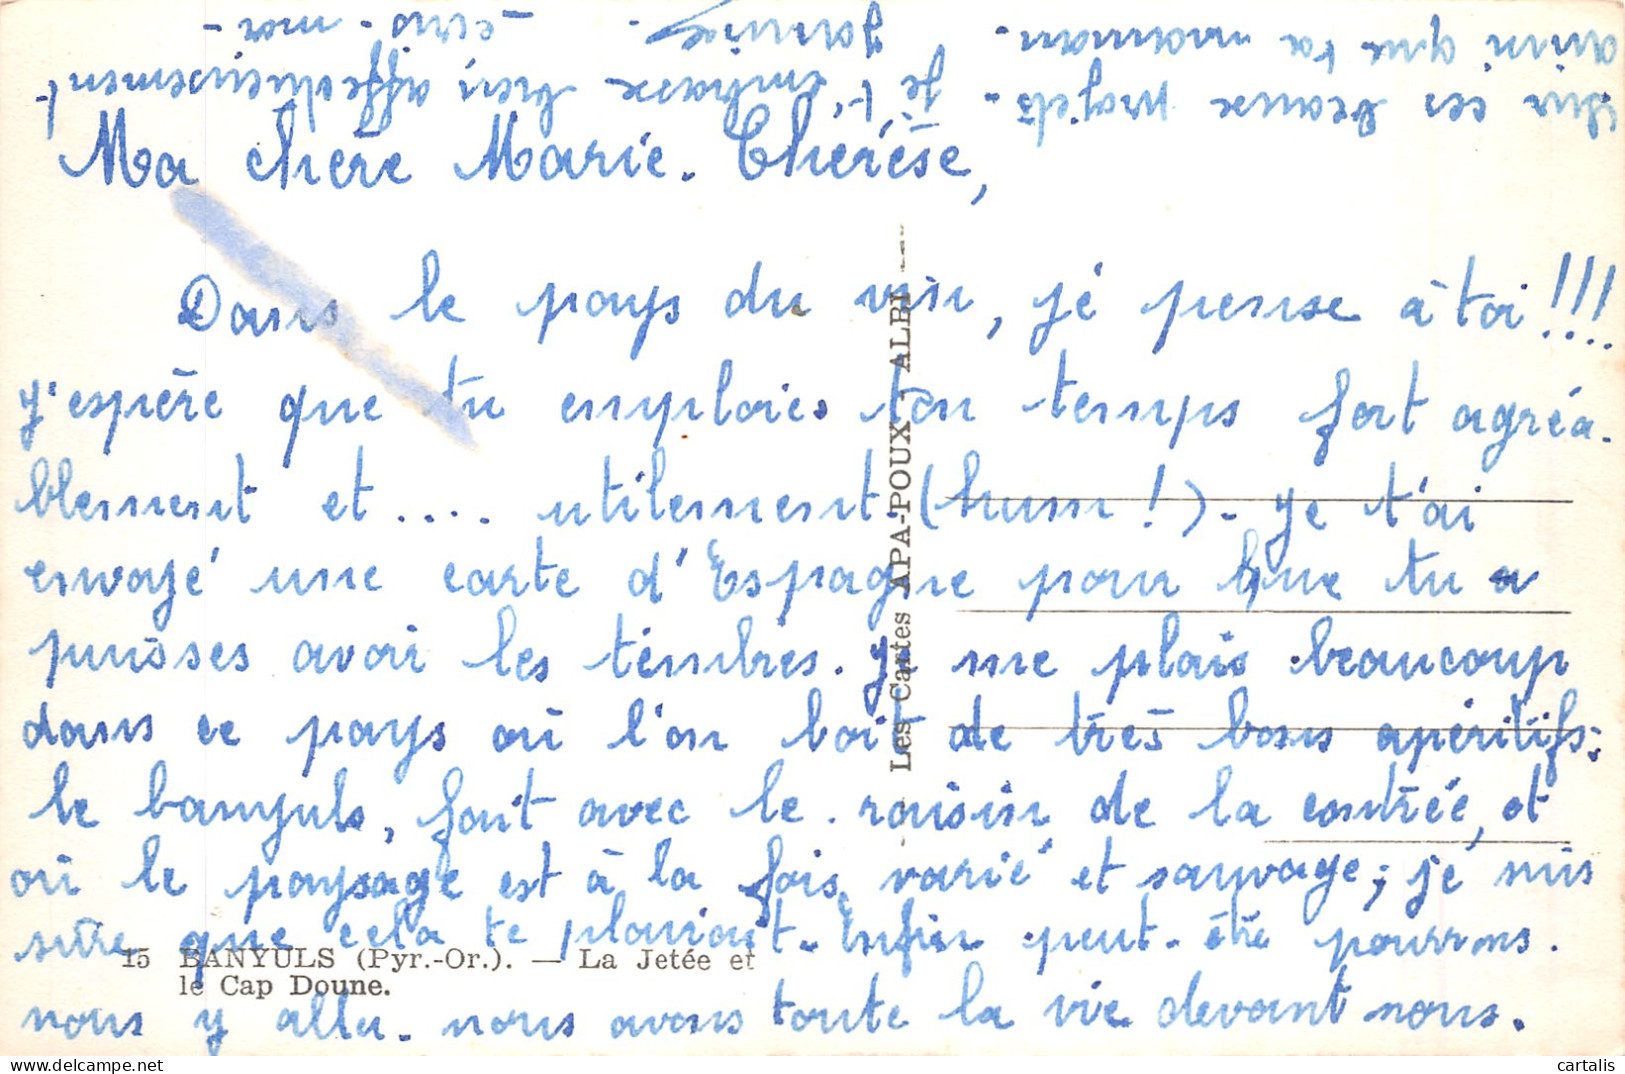 Ma chère Marie-Thérèse,
Dans le pays du vin, je pense à toi !!!
J'espère que tu emploies ton temps fort agréa-
blement et .... utilement (hum !). Je t'ai
envoyé une carte d'Espagne pour que tu
puisses avoir les timbres. Je me plais beaucoup
dans ce pays où l'on boit de très bons apéritifs:
le banyuls, fait avec le raisin de la contrée, et
où le paysage est à la fois varié et sauvage; je suis
sûre que cela te plairait. Enfin peut-être pourrons-
nous y aller. nous avons toute la vie devant nous.
Sur ces beaux projets. je t'embrasse bien affectueusement
ainsi que ta maman.
Les Cartes APA-POUX - ALBI
15 BANYULS (Pyr.-Or.). — La Jetée et
le Cap Doune.
cartalis